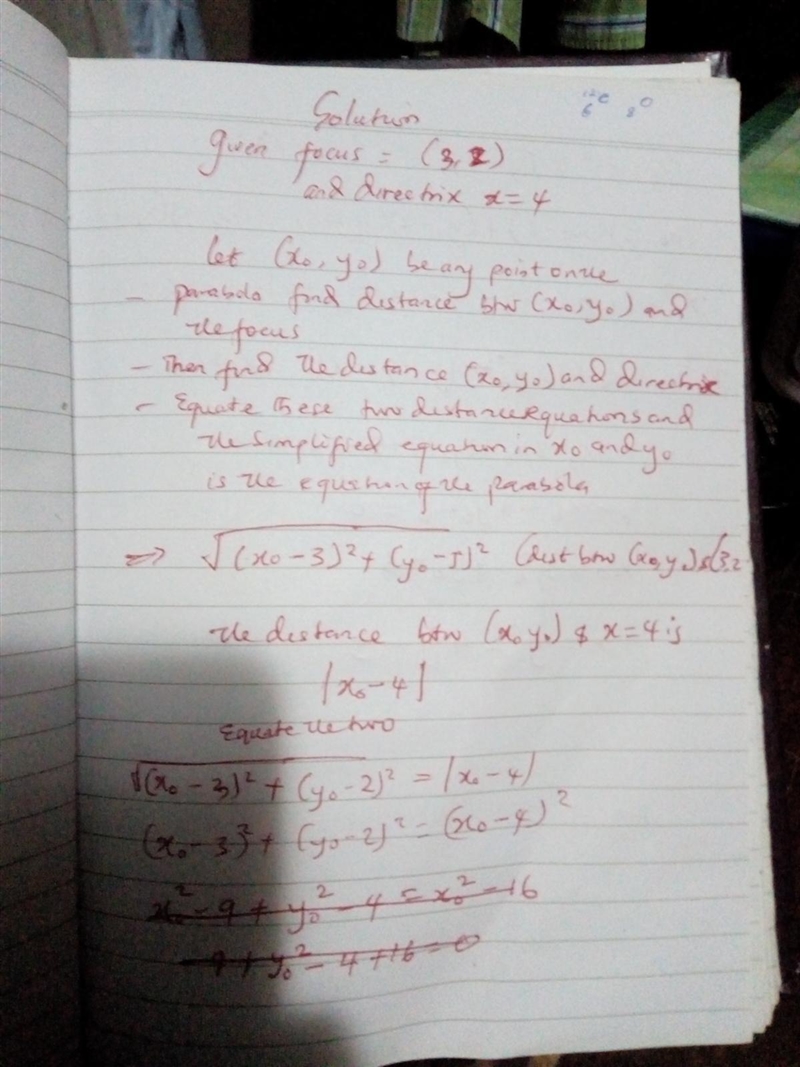 Solution
12 C
6
8 O
Given focus = (3, 2)
and directrix x = 4
let (x₀, y₀) be any point on the
- parabola find distance btw (x₀, y₀) and
the focus
- Then find the distance (x₀, y₀) and directrix
- Equate these two distance equations and
the simplified equation in x₀ and y₀
is the equation of the parabola
=> √(x₀ - 3)² + (y₀ - 5)² (dist btw (x₀, y₀) & (3, 2
the distance btw (x₀ y₀) & x = 4 is
|x₀ - 4|
Equate the two
√(x₀ - 3)² + (y₀ - 2)² = |x₀ - 4|
(x₀ - 3)² + (y₀ - 2)² = (x₀ - 4)²
x₀² - 9 + y₀² - 4 = x₀² - 16
- 9 + y₀² - 4 + 16 = 0